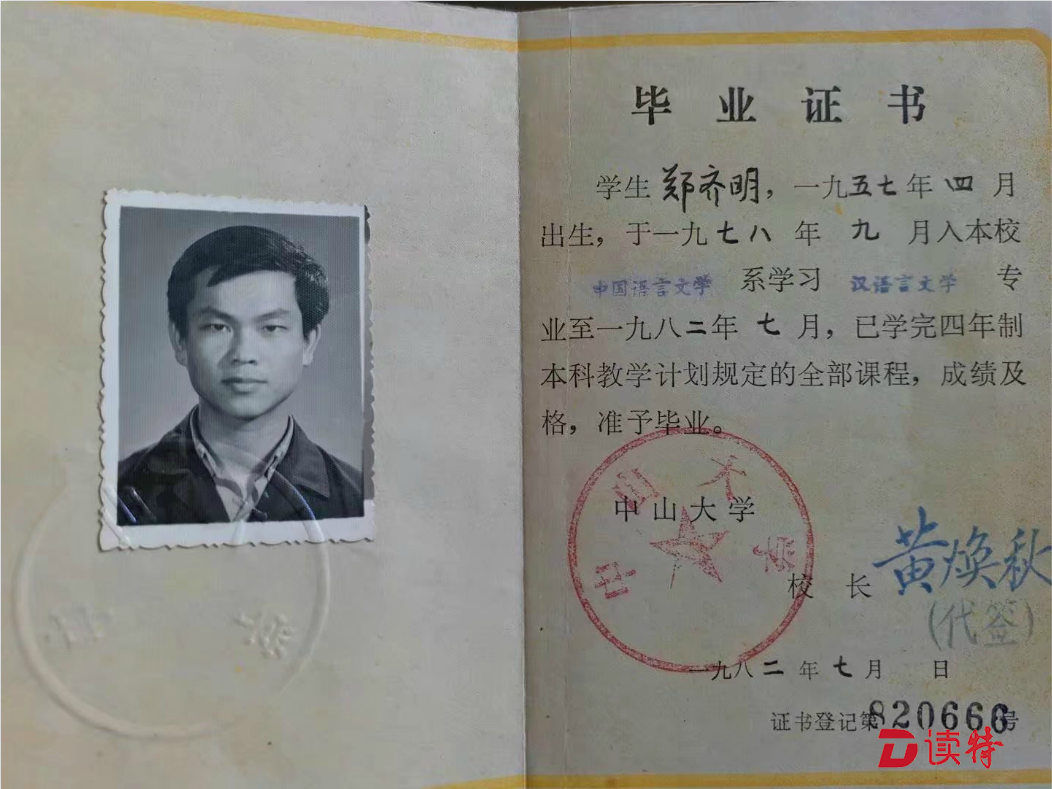 毕业证书
学生郑齐明，一九五七年四月
出生，于一九七八年九月入本校
中国语言文学系学习汉语言文学专
业至一九八二年七月，已学完四年制
本科教学计划规定的全部课程，成绩及
格，准予毕业。
中山大学
中山大学
校长 黄焕秋
(代签)
一九八二年七月 日
证书登记第820666号
读特